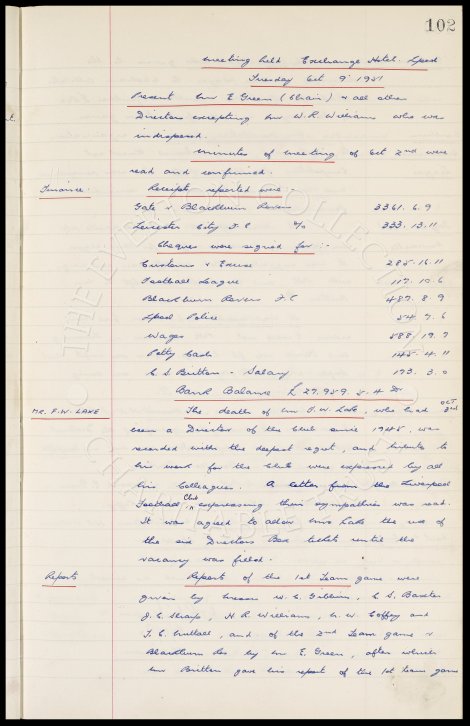 102
Meeting held Exchange Hotel. Lpool
Tuesday Oct 9th 1951
Present Mr E Green (Chair) & all other
Directors excepting Mr W. R. Williams who was
indisposed.
Minutes of Meeting of Oct 2nd were
read and confirmed.
Finance.
Receipts reported were :-
Gate v Blackburn Rovers 3361. 6. 9
Leicester City F.C % 333. 13. 11
Cheques were signed for :-
Customs & Excise 285. 16. 11
Football League 117. 10. 6
Blackburn Rovers F.C 487. 8. 9
Lpool Police 54. 7. 6
Wages 588. 19. 7
Petty Cash 145. 4. 11
C. S Britton - Salary 173. 3. 0
Bank Balance £ 27.959. 5. 4 Dr
MR. F.W. LAKE
The death of Mr F. W. Lake, who had OCT 3rd
been a Director of the Club since 1945, was
recorded with the deepest regret, and tributes to
his work for the Club were expressed by all
his Colleagues. A letter from the Liverpool
Football Club expressing their sympathies was read.
It was agreed to allow Mrs Lake the use of
the six Directors Box tickets until the
vacancy was filled.
Reports
Reports of the 1st Team game were
given by Messrs W. C. Gibbins, C. S. Baxter
J. C. Sharp, H. R. Williams, W. Coffey and
T. C. Nuttall, and of the 2nd Team game v
Blackburn Res by Mr E. Green, after which
Mr Britton gave his report of the 1st team game
THE EVERTON COLLECTION
CHARITABLE TRUST